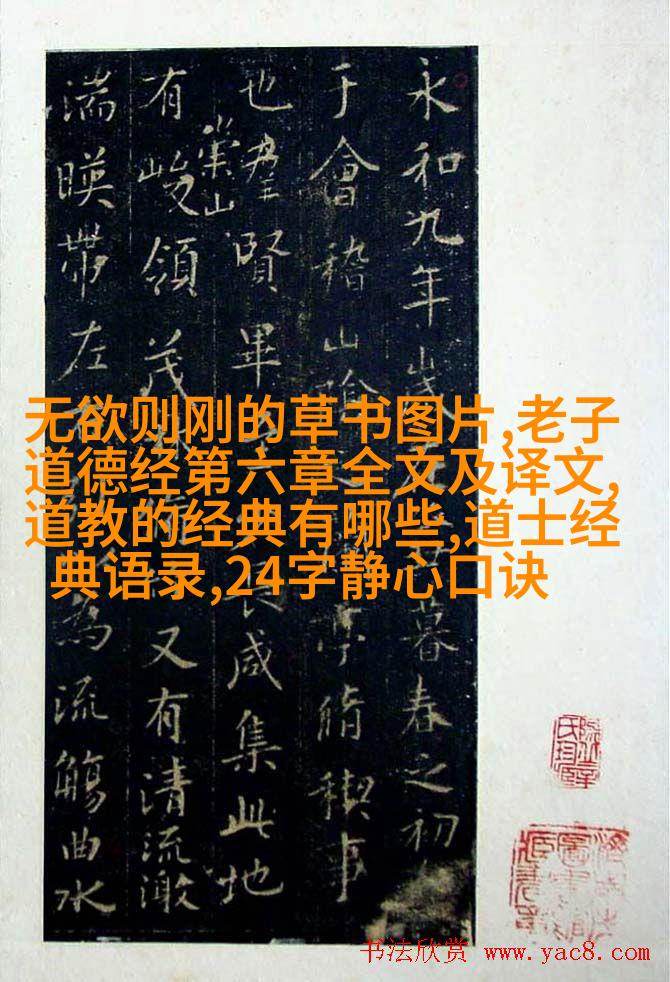 永和九年歲暮春之初
于會稽山陰亭脩禊事
也羣賢畢咸集此地
有崇山峻領茂又有清流激
湍暎帶左右為流觴曲水
无欲则刚的草书图片,老子
道德经第六章全文及译文,
道教的经典有哪些,道士经
典语录,24字静心口诀
书法欣赏 www.yac8.com